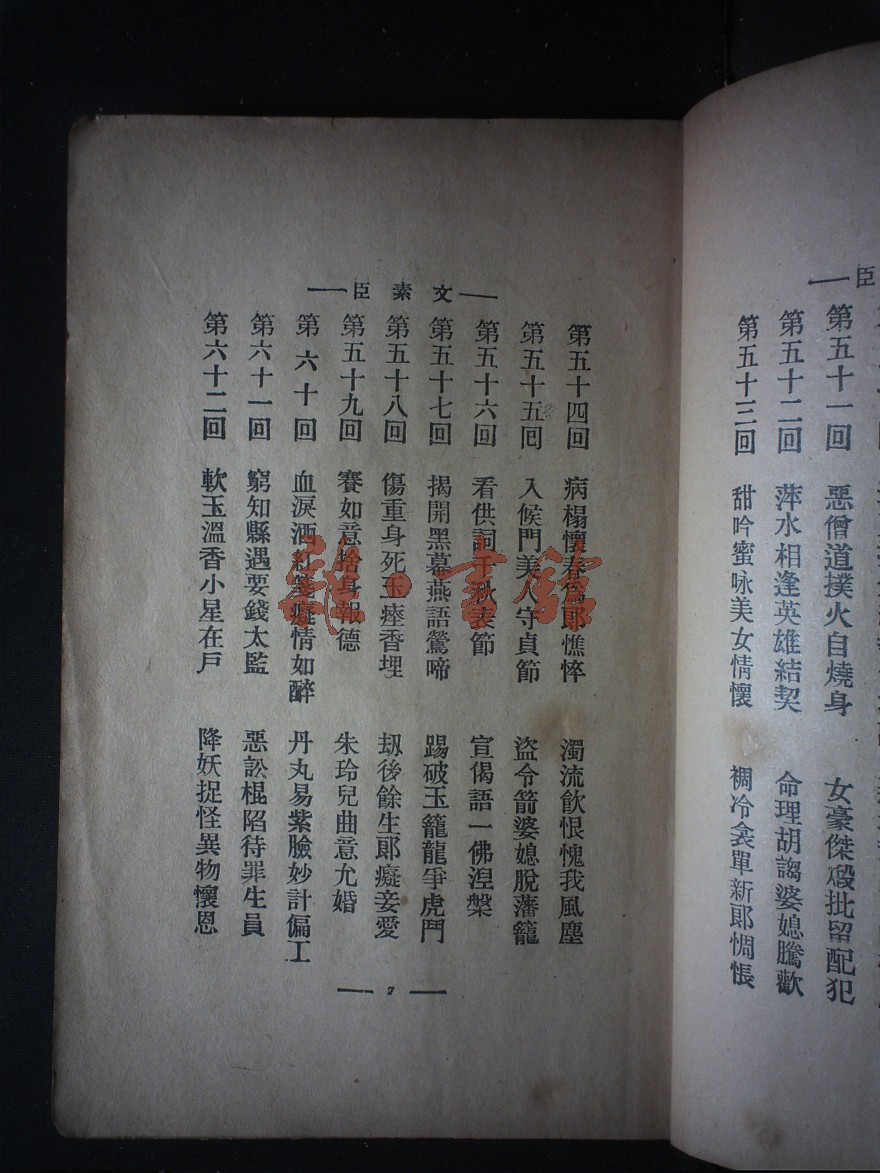 臣
第五十一回 惡僧道撲火自燒身 女豪傑毀批留配犯
第五十二回 萍水相逢英雄結契 命理胡謅婆媳騰歡
第五十三回 甜吟蜜咏美女情懷 裯冷衾單新郎惆悵
文素臣
第五十四回 病榻懷春爲郎憔悴 濁流飲恨愧我風塵
第五十五回 入候門美人守貞節 盜令箭婆媳脫藩籠
第五十六回 看供詞千秋表節 宣偈語一佛湼槃
第五十七回 揭開黑幕燕語鶯啼 踢破玉籠龍爭虎鬥
第五十八回 傷重身死玉瘞香埋 刼後餘生郎癡妾愛
第五十九回 賽如意捨身報德 朱玲兒曲意允婚
第六十回 血淚洒紅箋癡情如醉 丹丸易紫臉妙計偏工
第六十一回 窮知縣遇要錢太監 惡訟棍陷待罪生員
第六十二回 軟玉溫香小星在戶 降妖捉怪異物懷恩
7
雜·書館